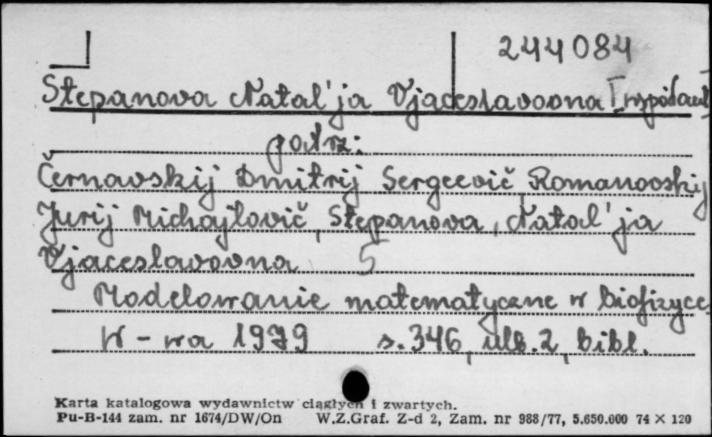 244084
Stepanova Natal'ja Vjaceslavovna [współaut]
patrz:
Černavskij Dmitrij Sergeevič, Romanovskij
Jurij Michajlovič, Stepanova, Natal'ja
Vjaceslavovna 5
Modelowanie matematyczne w biofizyce
W-wa 1979 s. 346, ulb. 2, bibl.
Karta katalogowa wydawnictw ciągłych i zwartych.
Pu-B-144 zam. nr 1674/DW/On W.Z.Graf. Z-d 2, Zam. nr 988/77, 5.650.000 74 × 120